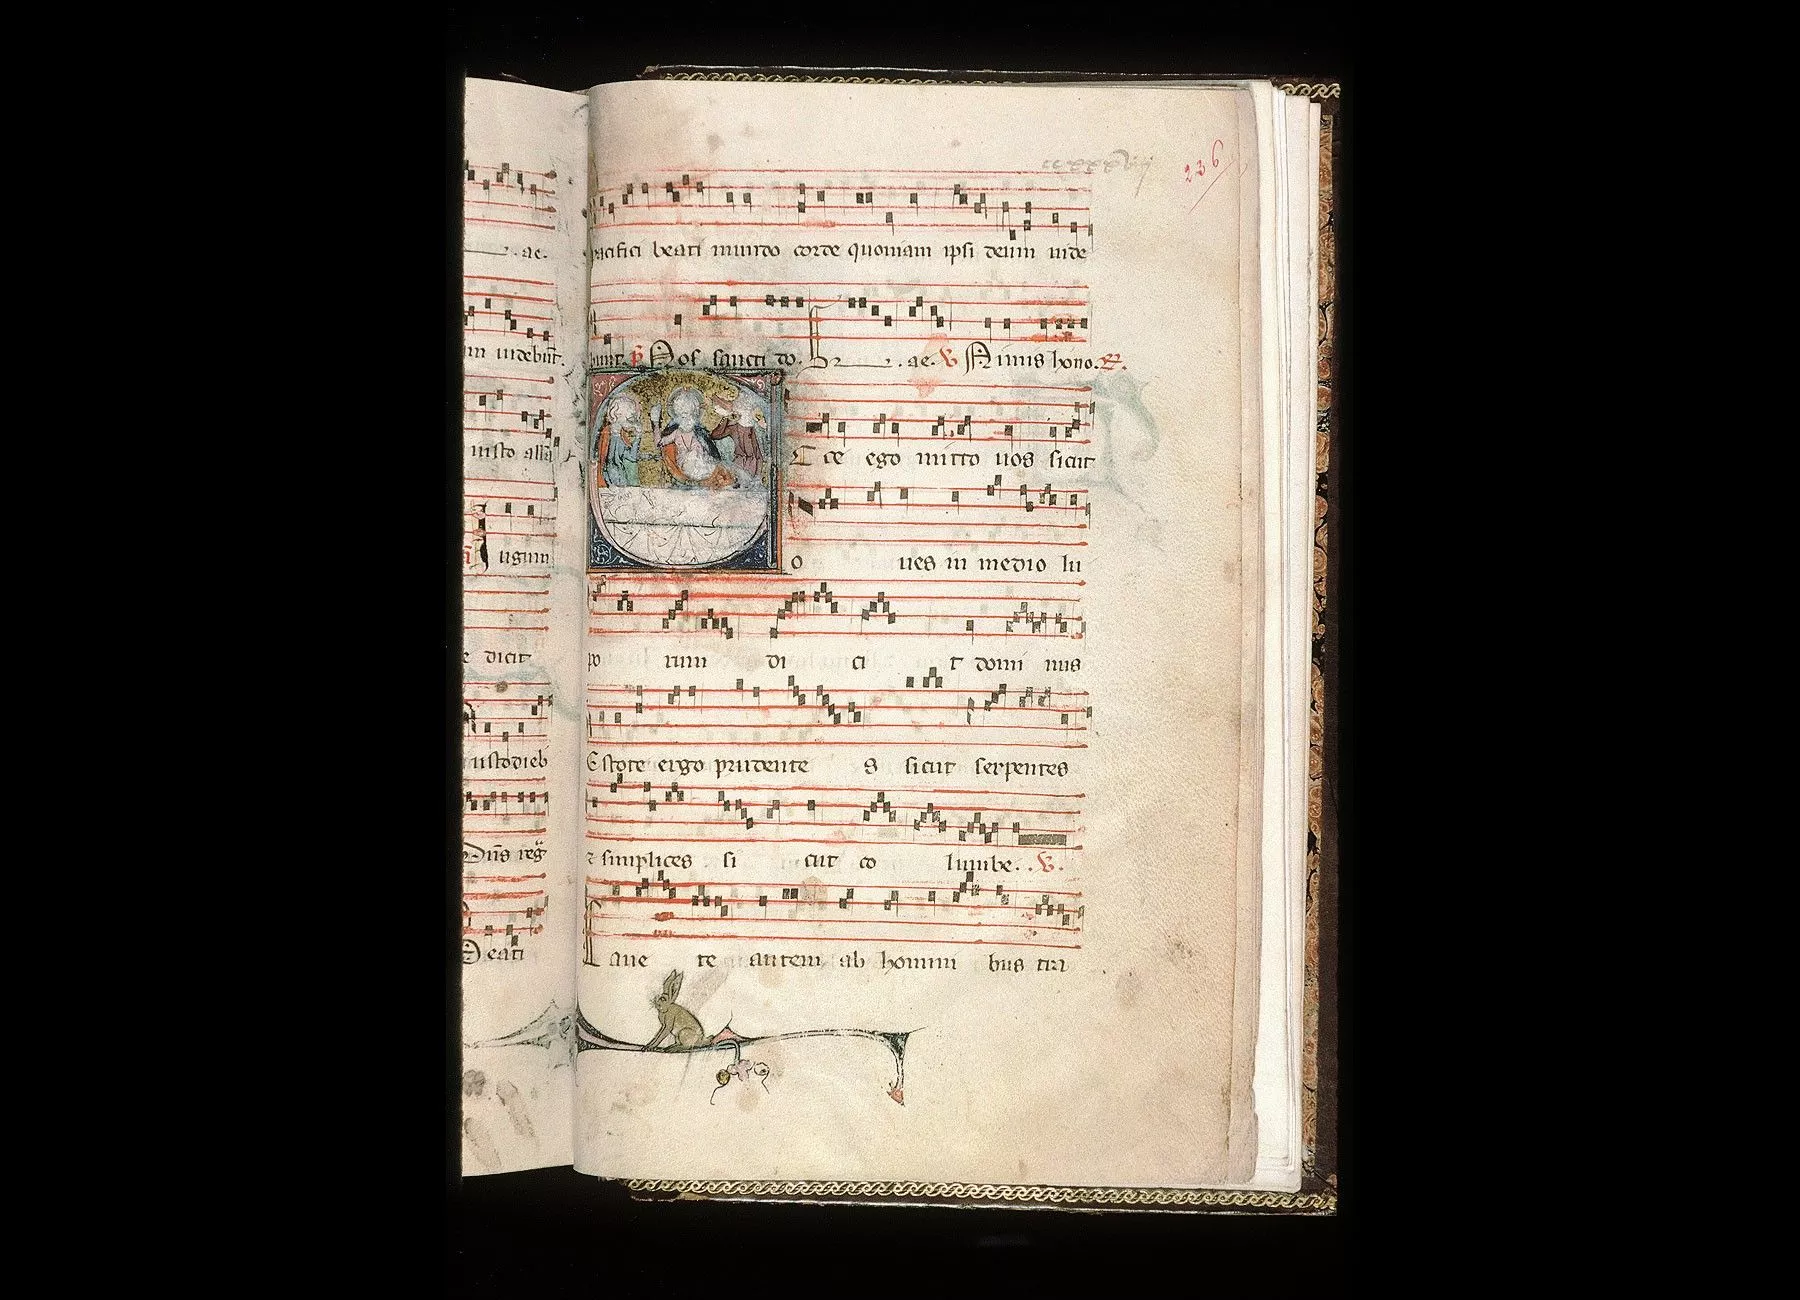 ae.
videb̄t.
iusto all̄a
iugum
e dicit
custodieb
Dn̄s reg
Beati
ccxxxvij
236
pacifici beati mundo corde quoniam ipsi deum vide
bunt. p̄s Nos sancti do. ae. V Nimis hono. R.
E cce ego mitto uos sicut
o ues in medio lu
po rum di ci t domi nus
Estote ergo prudente s sicut serpentes
⁊ simplices si cut co lumbe. . V.
Caue te autem ab homini bus tra